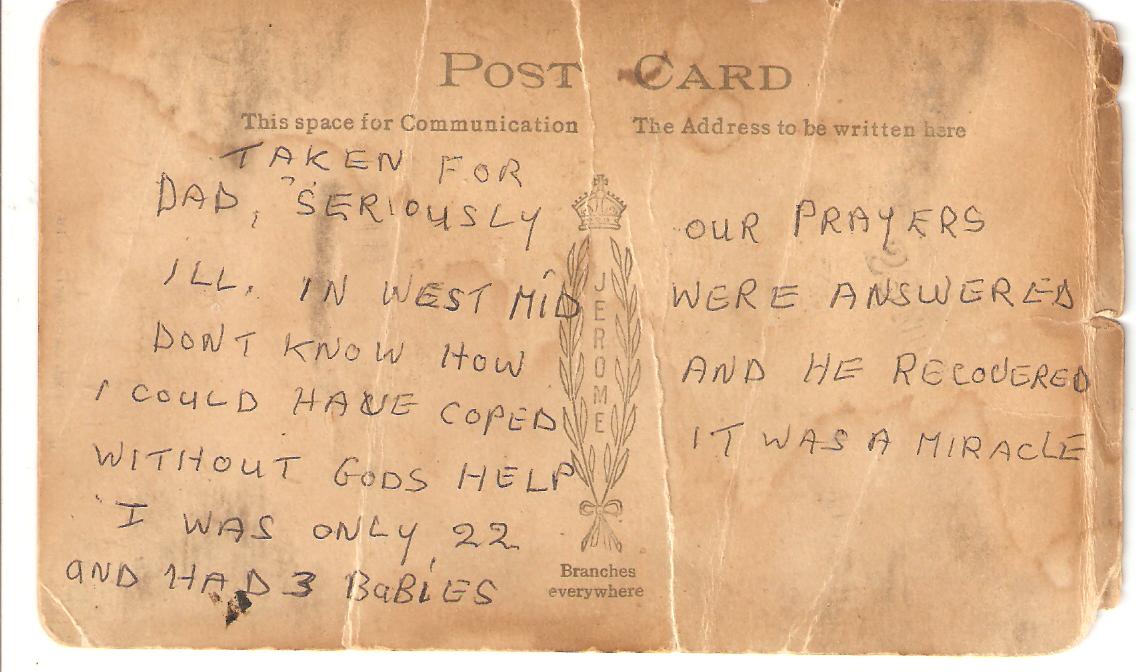 POST CARD
This space for Communication
The Address to be written here
TAKEN FOR
DAD, SERIOUSLY
ILL. IN WEST MID
DONT KNOW HOW
I COULD HAVE COPED
WITHOUT GODS HELP
I WAS ONLY 22
AND HAD 3 BaBIES
OUR PRAYERS
WERE ANSWERED
AND HE RECOVERED
IT WAS A MIRACLE
JEROME
Branches
everywhere